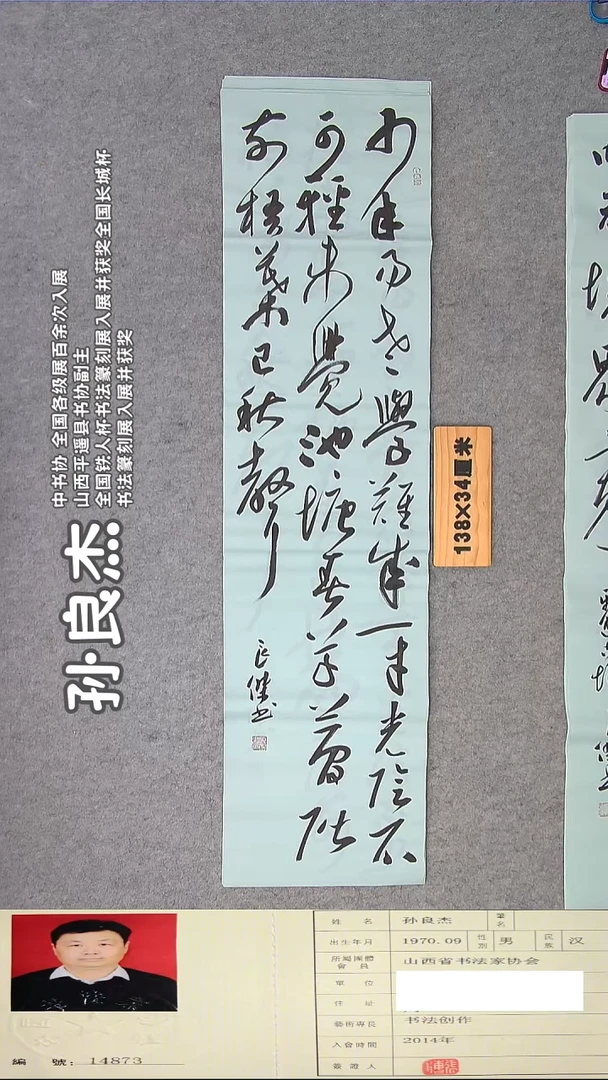 少年易老學難成一寸光陰不
可輕未覺池塘春草夢階
前梧葉已秋聲
良傑書
138×34厘米
孙良杰
中书协 全国各级展百余次入展
山西平遥县书协副主
全国铁人杯书法篆刻入展并获奖全国长城杯
书法篆刻展入展并获奖
編 號: 14873
姓 名 孙良杰 筆名
出生年月 1970.09 性別 男 民族 汉
所屬團體會員 山西省书法家协会
單 位
住 址
藝術專長 书法创作
入會時間 2014年
簽證人